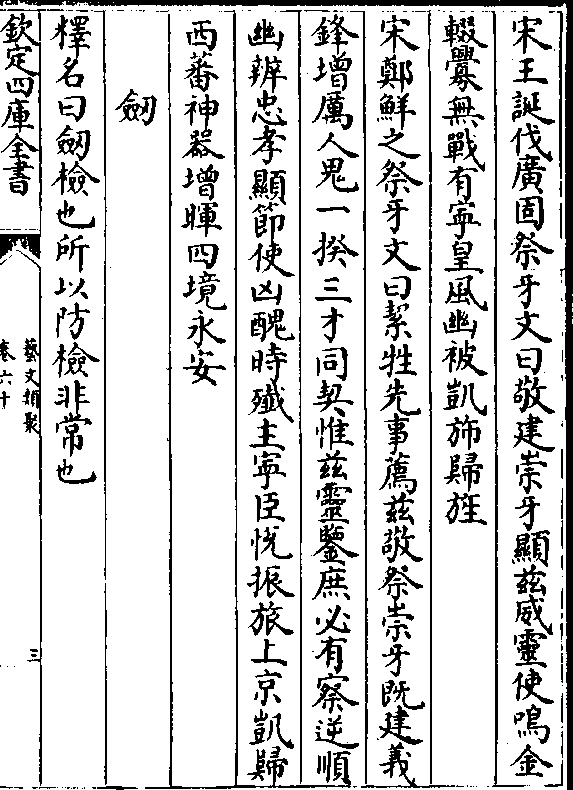 宋王誕伐廣固祭牙文曰敬建崇牙顯兹威靈使嗚金
輟釁無戰有寧皇風幽被凱斾歸旌
宋鄭鮮之祭牙文曰絜牲先事薦兹敬祭崇牙既建義
鋒增厲人鬼一揆三才同契惟兹靈鑒庶必有察逆順
幽辨忠孝顯節使凶醜時殲主寧臣悅振旅上京凱歸
西蕃神器增暉四境永安
劒
釋名曰劒檢也所以防檢非常也
欽定四庫全書
藝文類聚
卷六十
三